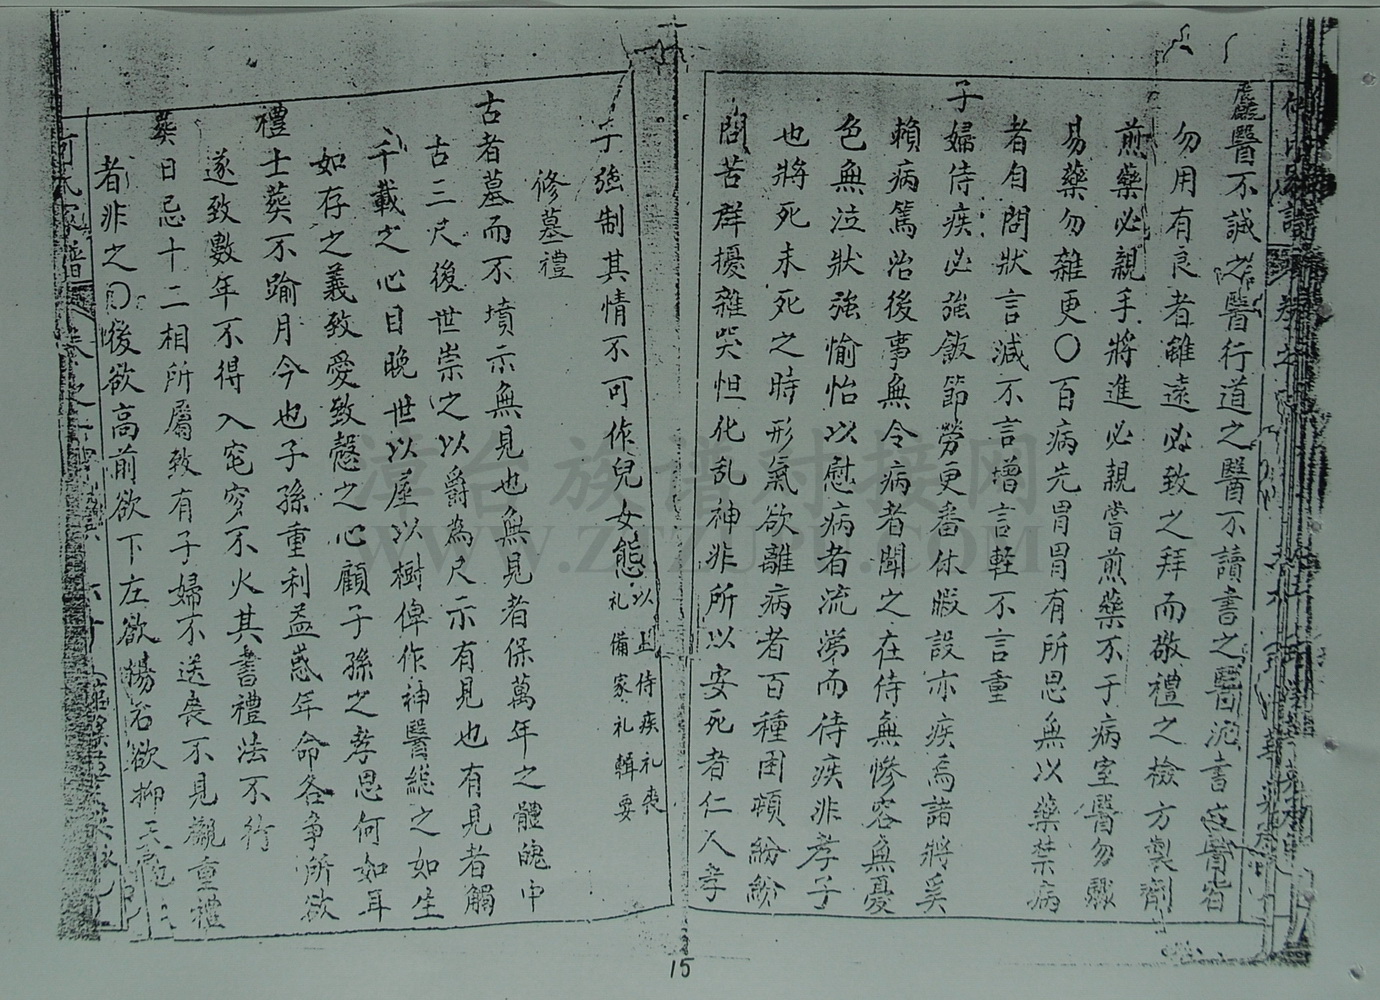 醫不誠之醫行道之醫不讀書之醫泥書之醫皆
勿用有良者雖遠必致之拜而敬禮之檢方製劑
煎藥必親手將進必親嘗煎藥不于病室醫勿驟
易藥勿雜更〇百病先胃胃有所思無以藥禁病
者自問狀言減不言增言輕不言重
子婦侍疾必強飯節勞更番休暇設亦疾焉諸將奚
賴病篤治後事無令病者聞之在侍無慘容無憂
色無泣狀強愉怡以慰病者流涕而侍疾非孝子
也將死未死之時形氣欲離病者百種困頓紛紛
問苦群擾雜哭怛化乱神非所以安死者仁人孝
子強制其情不可作兒女態以上侍疾礼喪
礼備家礼輯要
修墓禮
古者墓而不墳示無見也無見者保萬年之體魄中
古三尺後世崇之以爵為尺示有見也有見者觸
千載之心目晚世以屋以樹俾作神醫総之如生
如存之義致愛致慤之心顧子孫之孝思何如耳
禮士葬不踰月今也子孫重利益惑年命各爭所欲
遂致數年不得入窀穸不火其書禮法不行
葬日忌十二相所屬致有子婦不送喪不見窆重禮
者非之〇後欲高前欲下左欲揚右欲抑
15
潭台族谱对接网
WWW.ZTZUPU.COM